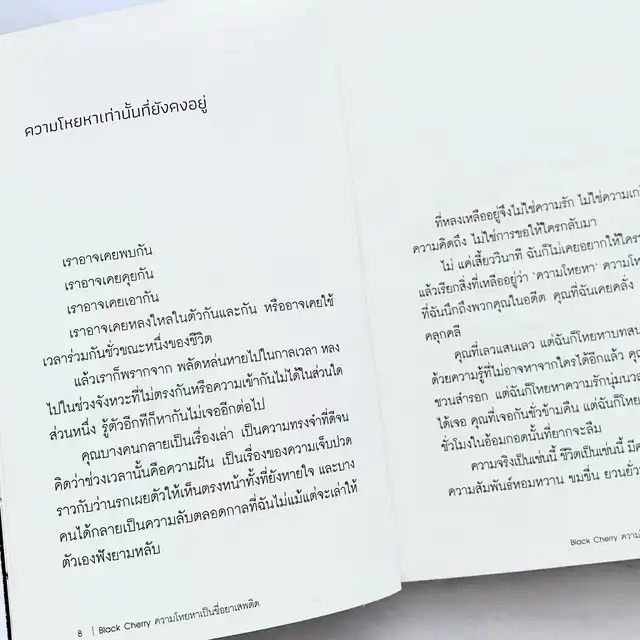 ความโหยหาเท่านั้นที่ยังคงอยู่
เราอาจเคยพบกัน
เราอาจเคยคุยกัน
เราอาจเคยเอากัน
เราอาจเคยหลงใหลในตัวกันและกัน หรืออาจเคยใช้
เวลาร่วมกันชั่วขณะหนึ่งของชีวิต
แล้วเราก็พรากจาก พลัดหล่นหายไปในกาลเวลา หลง
ไปในช่วงจังหวะที่ไม่ตรงกันหรือความเข้ากันไม่ได้ในส่วนใด
ส่วนหนึ่ง รู้ตัวอีกทีก็หากันไม่เจออีกต่อไป
คุณบางคนกลายเป็นเรื่องเล่า เป็นความทรงจำที่ดีจน
คิดว่าช่วงเวลานั้นคือความฝัน เป็นเรื่องของความเจ็บปวด
ราวกับว่านรกเผยตัวให้เห็นตรงหน้าทั้งที่ยังหายใจ และบาง
คนได้กลายเป็นความลับตลอดกาลที่ฉันไม่แม้แต่จะเล่าให้
ตัวเองฟังยามหลับ
8 | Black Cherry ความโหยหาเป็นชื่อยาเสพติด
ที่หลงเหลืออยู่จึงไม่ใช่ความรัก ไม่ใช่ความ
ความคิดถึง ไม่ใช่การขอให้ใครกลับมา
ไม่ แค่เสี้ยววินาที ฉันก็ไม่เคยอยากให้ใคร
แล้วเรียกสิ่งที่เหลืออยู่ว่า ‘ความโหยหา’
ที่ฉันนึกถึงพวกคุณในอดีต คุณที่ฉันเคยคลั่ง
คลุกคลี
คุณที่เลวแสนเลว แต่ฉันก็โหยหา
ด้วยความรู้ที่ไม่อาจหาจากใครได้อีกแล้ว
ชวนสำรอก แต่ฉันก็โหยหาความรัก
ได้เจอ คุณที่เจอกันชั่วข้ามคืน แต่ฉันก็โหย
ชั่วโมงในอ้อมกอดนั้นที่ยากจะลืม
ความจริงเป็นเช่นนี้ ชีวิตเป็นเช่นนี้
ความสัมพันธ์หอมหวาน ขมขื่น
Black Cherry